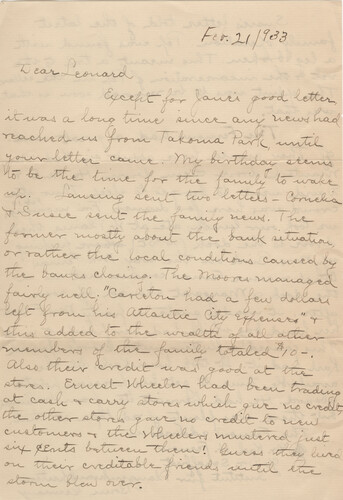 Fev. 21/933
Dear Leonard,
Except for Jane's good letter,
it was a long time since any news had
reached us from Takoma Park until
your letter came. My birthday seems
to be the time for the family to wake
up. Lansing sent two letters - Cornelia
& Susie sent the family news. The
former mostly about the bank situation,
or rather the local conditions caused by
the banks closing. The Moores managed
fairly well; "Carleton had a few dollars
left from his Atlantic City expenses" &
this added to the wealth of all other
members of the family totaled $10-.
Also their credit was good at the
stores. Ernest Wheeler had been trading
at cash & carry stores which give no credit,
the other stores gave no credit to new
customers & the Wheelers mustered just
six cents between them! Guess they were
on their creditable friends until the
storm blew over.